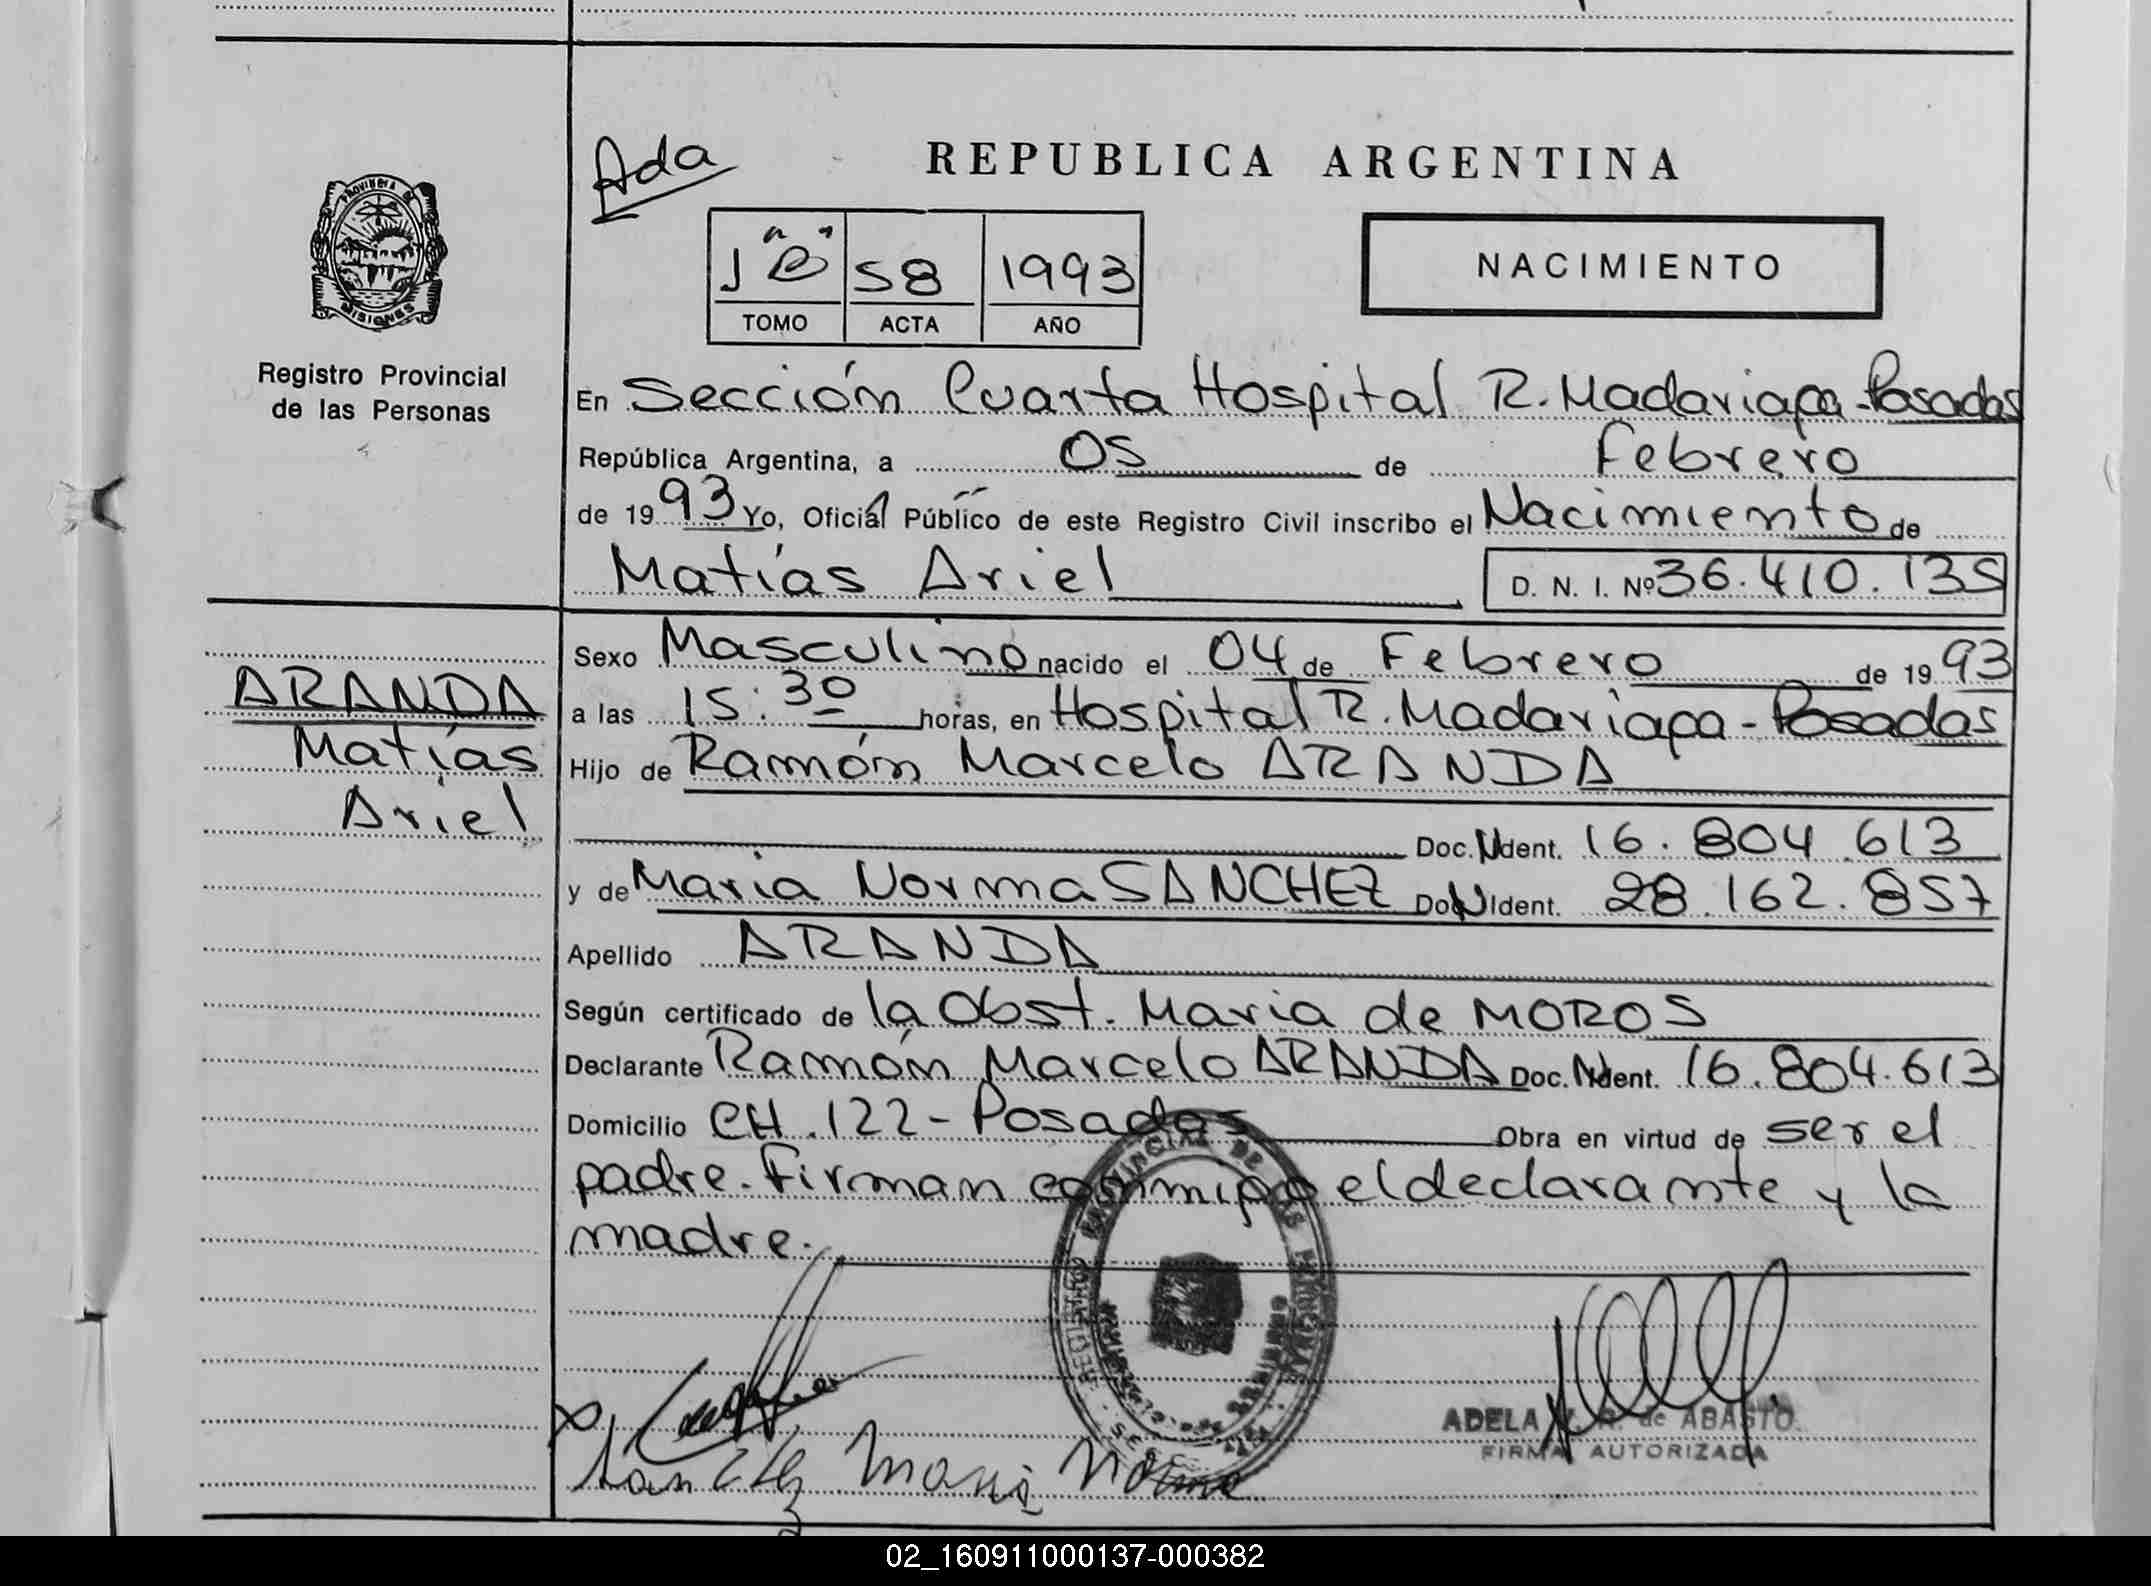 Ada
REPUBLICA ARGENTINA
PROVINCIA DE
MISIONES
1 "B" 58 1993
TOMO ACTA AÑO
NACIMIENTO
Registro Provincial
de las Personas
En Sección Cuarta Hospital R. Madariaga - Posadas
República Argentina, a 05 de Febrero
de 1993 Yo, Oficial Público de este Registro Civil inscribo el Nacimiento de
Matías Ariel D. N. I. Nº 36.410.135
ARANDA
Matías
Ariel
Sexo Masculino nacido el 04 de Febrero de 1993
a las 15:30 horas, en Hospital R. Madariaga - Posadas
Hijo de Ramón Marcelo ARANDA
Doc. Ident. 16.804.613
y de Maria Norma SANCHEZ Doc. Ident. 28.162.857
Apellido ARANDA
Según certificado de la Obst. Maria de MOROS
Declarante Ramón Marcelo ARANDA Doc. Ident. 16.804.613
Domicilio CH. 122 - Posadas Obra en virtud de ser el
padre. Firman conmigo el declarante y la
madre.
REGISTRO PROVINCIAL DE LAS PERSONAS
ADELA de ABASTO
FIRMA AUTORIZADA
Sanchez Maria Norma
02_160911000137-000382